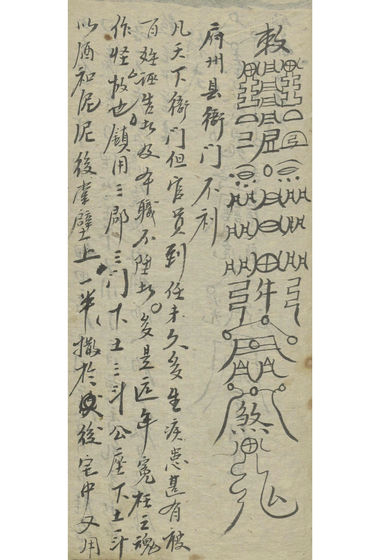 敕
煞
府州县衙门不利
凡天下衙门但官員到任未久多生疾患甚有被
百姓誣告者及本職不陞者多是近年冤枉亡魂
作怪故也鎮用三郡三门下土三斗公座下土一斗
以酒和泥泥後堂壁上一半撒於後宅中又用